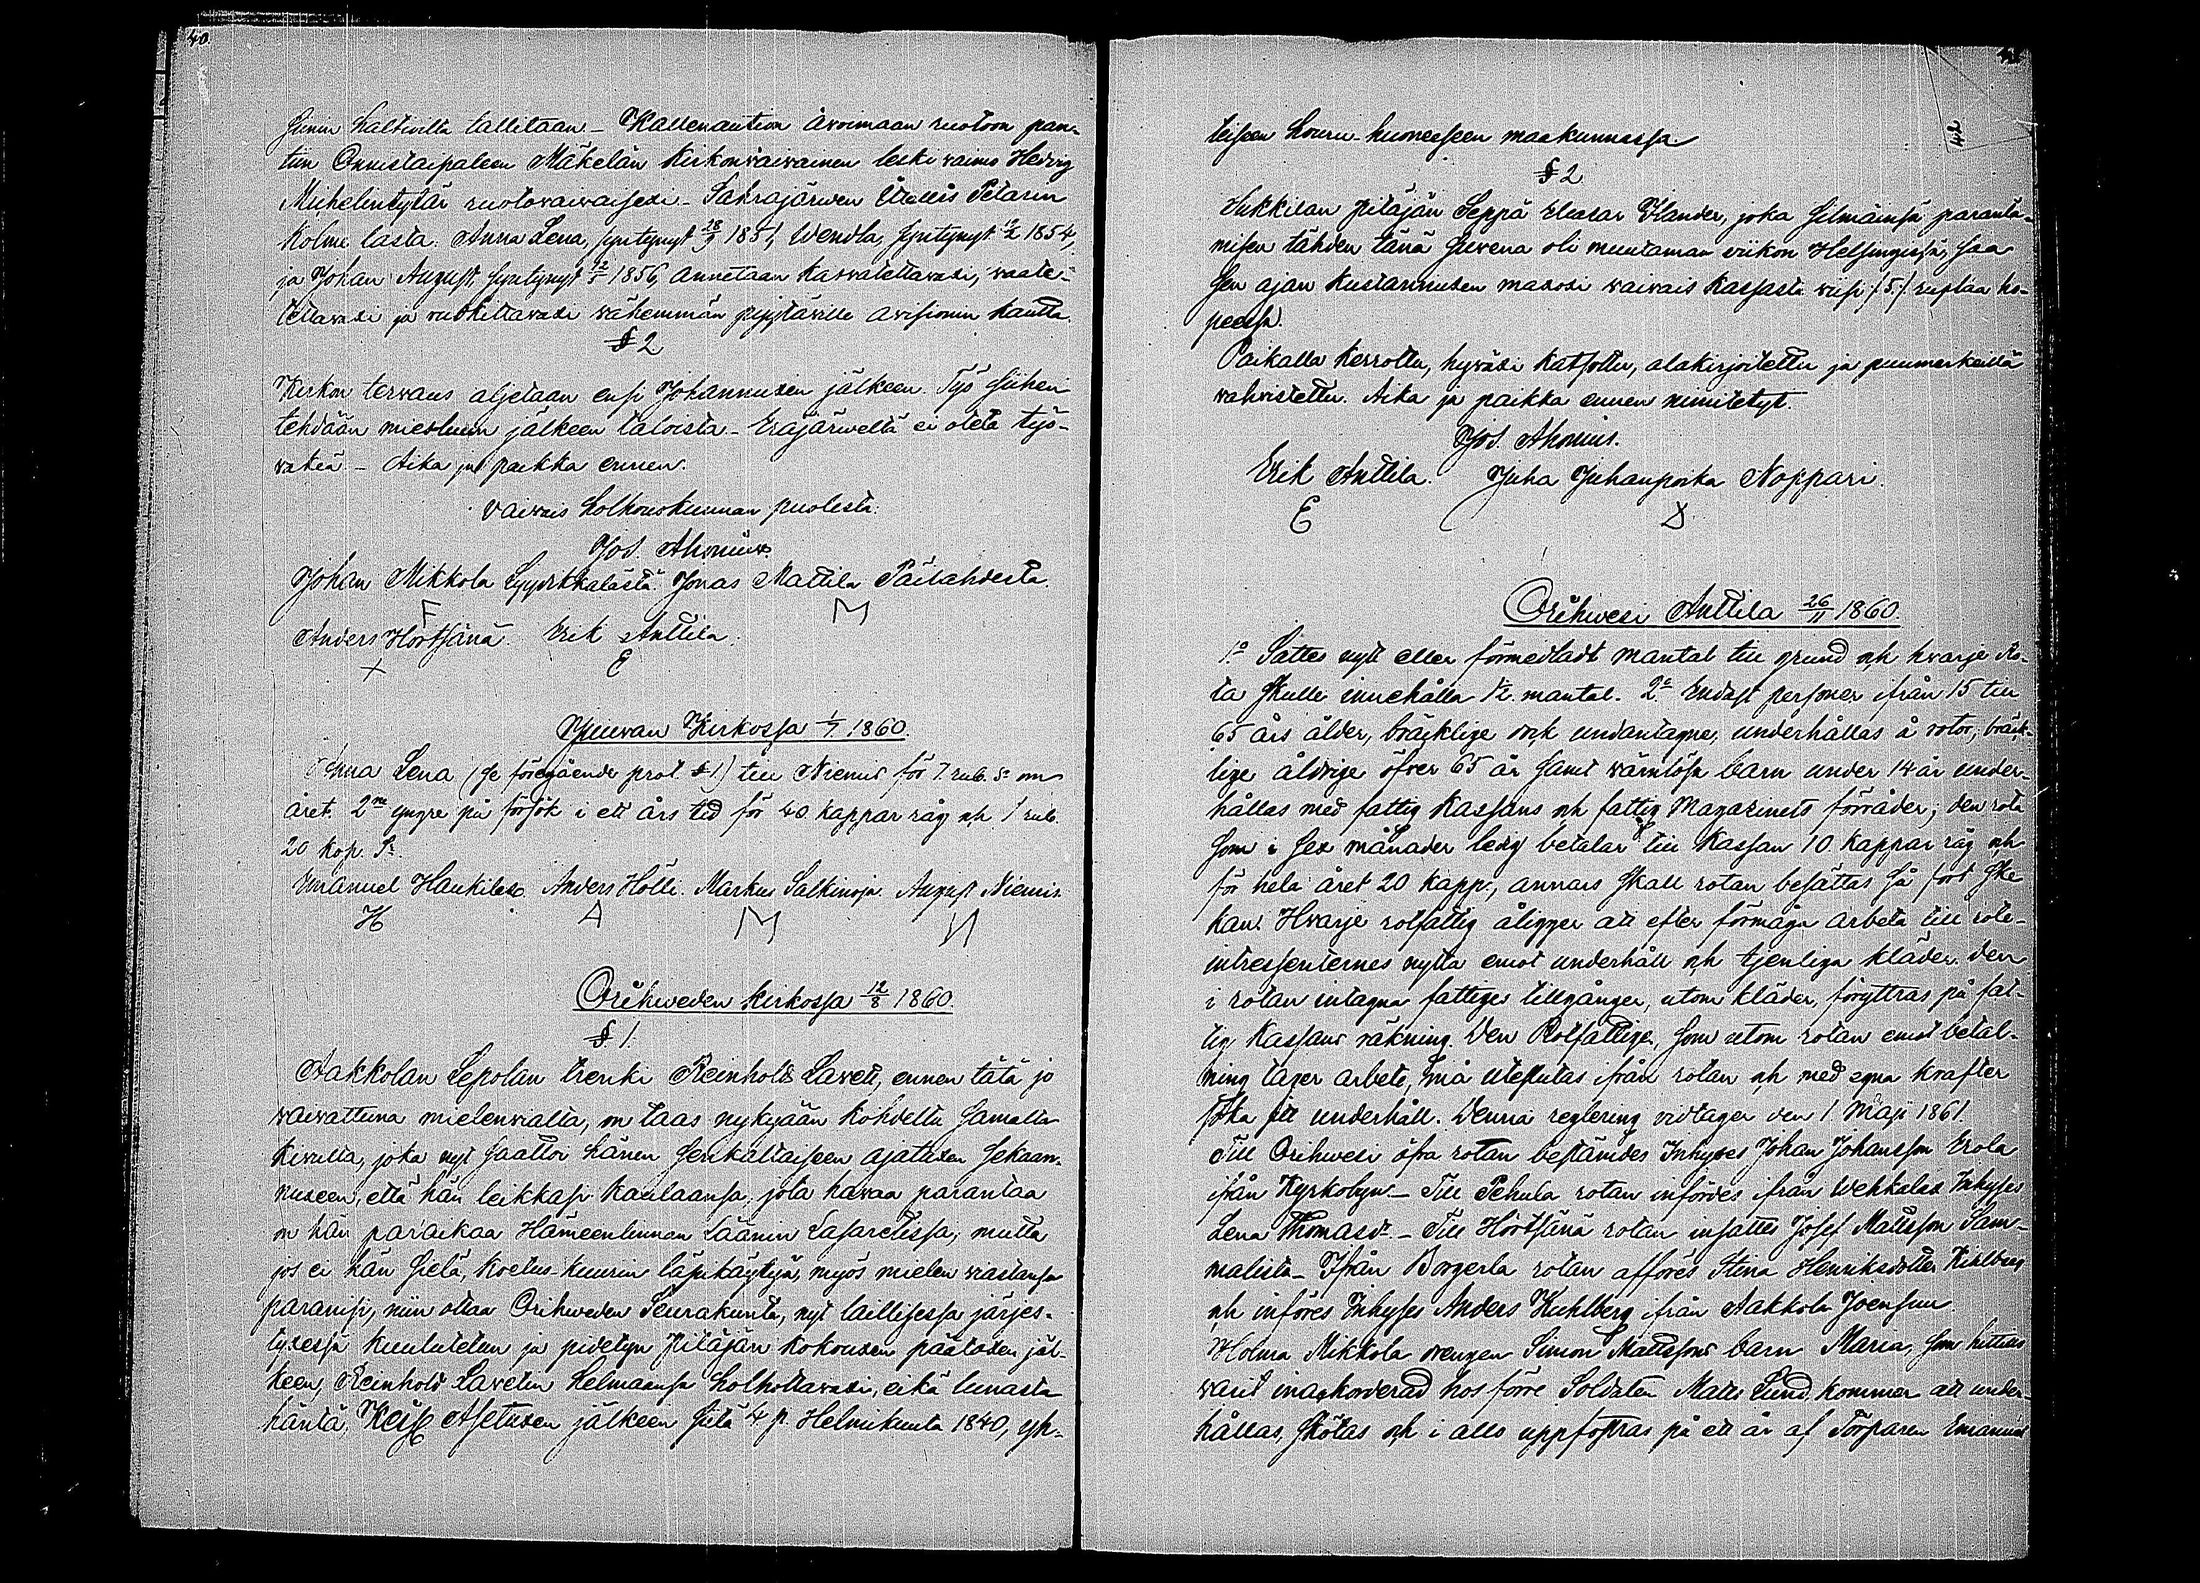 40.
sunin haltivilta tallitaan – Kallenaution avoimaan ruotoon pan-
tiin Onnistaipaleen Mäkelän Kirkonvaivainen leski vaimo Hedvig
Mihelintytär ruotovaivaiseksi – Sahrajärwen Petarin
kolme lasta: Anna Lena, syntynyt 28/9 1851, Wendla, syntynyt 12/2 1854,
ja Johan August, syntynyt 1856, annetaan kasvatettavaxi, vaate-
tettavaxi ja ruokittavaxi vähemmän pyytäville avisionin kautta.
§ 2
Kirkon tervaus aljetaan ensi Johannuxen jälkeen. Työ siihen
tehdään miesluvun jälkeen taloista – Eräjärweltä ei oteta työ-
väkeä – Aika ja paikka ennen.
Vaivais holhouskunnan puolesta:
Jos. Ahonius.
Johan Mikkola Lyydikkalästä. Jonas Mattila Päilahdesta.
F M
Anders Hörtsänä. Erik Anttila.
X E
Juuvan Kirkossa 1/7 1860.
Anna Lena (se föregående prot. § 1.) till Niemis för 7. rub. Sr om
året. 2ne yngre på försök i ett års tid för 40 kappar råg och 1 rub.
20 kop. Sr.
Emanuel Haukilax. Anders Hölli. Markus Salkinoja. August Niemis.
H A M N
Orihweden kirkossa 12/8 1860.
§. 1.
Aakkolan Lepolan trenki Reinhold Laveti, ennen tätä jo
vaivattuna mielenvialta, on taas nykyään kohdeltu samalta
kivulta, joka nyt saattoi hänen senkaltaiseen ajatuxen sekaan-
nuxeen, että hän leikkasi kaulaansa, jota havaa parantaa
on hän paraikaa Hämeenlinnan Läänin Lasaretissa; mutta
jos ei hän sielä, koetus-kuurin läpikäytyä, myös mielen viastansa
paranisi, niin ottaa Orihweden Seurakunta, nyt laillisessa järjes-
tyxessä kuulutetun ja pidetyn Pitäjän kokouxen päätöxen jäl-
keen, Reinhold Lavetin helmaansa holhottavaxi, eikä lunasta
häntä, Keis. Asetuxen jälkeen siitä 4 p. Helmikuuta 1840, yh-
42
teiseen houru-huoneeseen maakunnassa.
§ 2
Hukkilan pitäjän Seppä Eleasar Ylander, joka silmäinsä paranta-
misen tähden tänä suvena oli muutaman viikon Helsingissä, saa
sen ajan kustannuxen maxosi vaivais kassasta viisi /:5:/ ruplaa ho-
peessa.
Paikalla kerrottu, hyväxi katsottu, alakirjoitettu ja puumerkeillä
vahvistettu. Aika ja paikka ennen nimitetyt.
Jos. Ahonius.
Erik Anttila. Juha Juhanpoika Noppari.
E
Orihwesi Anttila 26/11 1860.
1o Sattes nytt eller förmedladt mantal till grund och hvarje Ro-
ta skulle innehålla 1½ mantal. 2o Endast personer ifrån 15 till
65 års ålder, bräcklige dock undantagne, underhållas å rotor; bräck-
lige åldrige öfver 65 år samt värnlösa barn under 14 år under-
hållas med fattig Kassans och fattig Magazinets förråder; den rota
som i sex månader ledig betalar till Kassan 10 kappar råg och
för hela året 20 kapp., annars skall rotan besättas så fort ske
kan. Hvarje rotfattig åligger att efter förmåga arbeta till rote-
intressenternes nytta emot underhåll och tjenliga kläder. Den
i rotan intagna fattiges tillgångar, utom kläder, föryttras på fat-
tig Kassans räkning. Den Rotfattige, som utom rotan emot betal-
ning tager arbete, må uteslutas ifrån rotan och med egna krafter
söka sitt underhåll. Denna reglering vidtager den 1. Maji 1861.
Till Orihwesi öfra rotan bestämdes Inhyses Johan Johansson Erola
ifrån Kyrkobyn – Till Pehula rotan infördes ifrån Wehkalax Inhyses
Lena Thomasdr. – Till Hörtsänä rotan insattes Josef Mattsson Sam-
malisto – Ifrån Borgerla rotan affördes Stina Henriksdotter Kihlberg
och infördes Inhyses Anders Kuhlberg ifrån Aakkola Joensuu.
Holma Mikkola drengen Simon Mattssons barn Maria, som hittills
varit inackorderad hos förre Soldaten Matts Lund, kommer att under-
hållas, skötas och i alls uppfostras på ett år af Torparen Emanuel